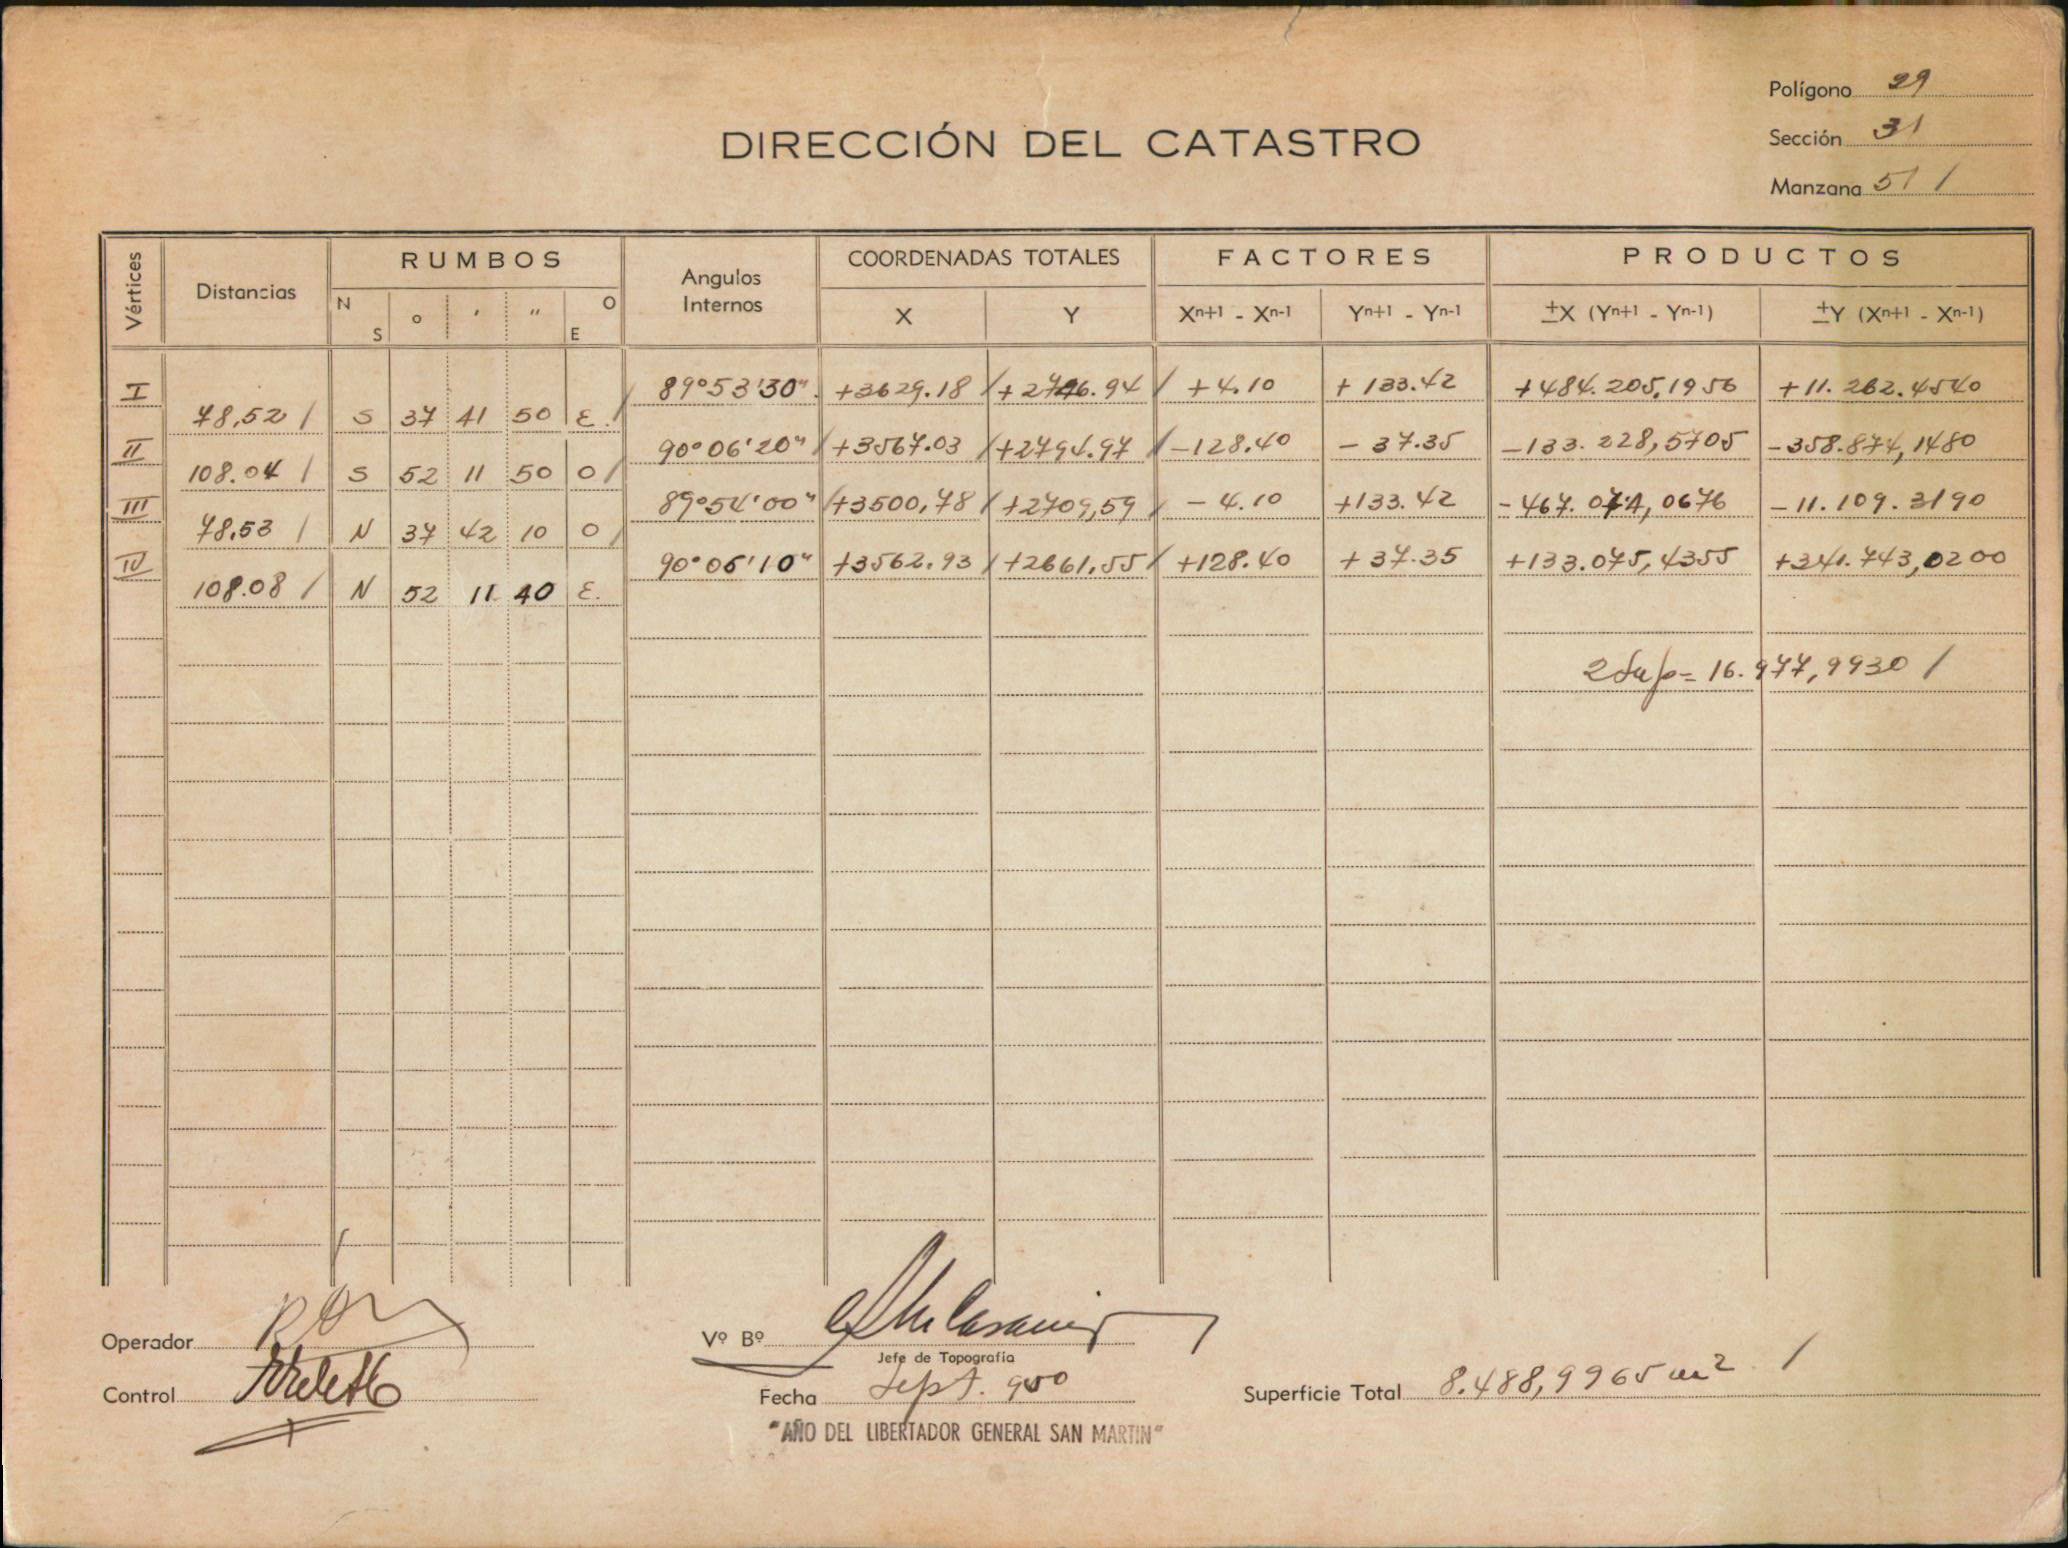 Polígono 29
DIRECCIÓN DEL CATASTRO
Sección 31
Manzana 51 /
Vértices Distancias RUMBOS Angulos Internos COORDENADAS TOTALES FACTORES PRODUCTOS
N S ° ' " O E X Y Xn+1 - Xn-1 Yn+1 - Yn-1 ±X (Yn+1 - Yn-1) ±Y (Xn+1 - Xn-1)
I 89°53'30" +3629.18 / +2746.94 / +4.10 +133.42 +484.205,1956 +11.262.4540
78,52 / S 37 41 50 E. /
II 90°06'20" / +3567.03 / +2794.97 / -128.40 - 37.35 -133.228,5705 -358.874,1480
108.04 / S 52 11 50 O /
III 89°54'00" / +3500,78 / +2709,59 / - 4.10 +133.42 -467.074,0676 -11.109.3190
78,53 / N 37 42 10 O /
IV 90°06'10" +3562.93 / +2661,55 / +128.40 +37.35 +133.075,4355 +341.743,0200
108.08 / N 52 11 40 E.
2 Sup= 16.977,9930 /
Operador
Vº Bº
Jefe de Topografía
Control
Fecha Sept. 950
Superficie Total 8.488,9965 m2 /
"AÑO DEL LIBERTADOR GENERAL SAN MARTIN"